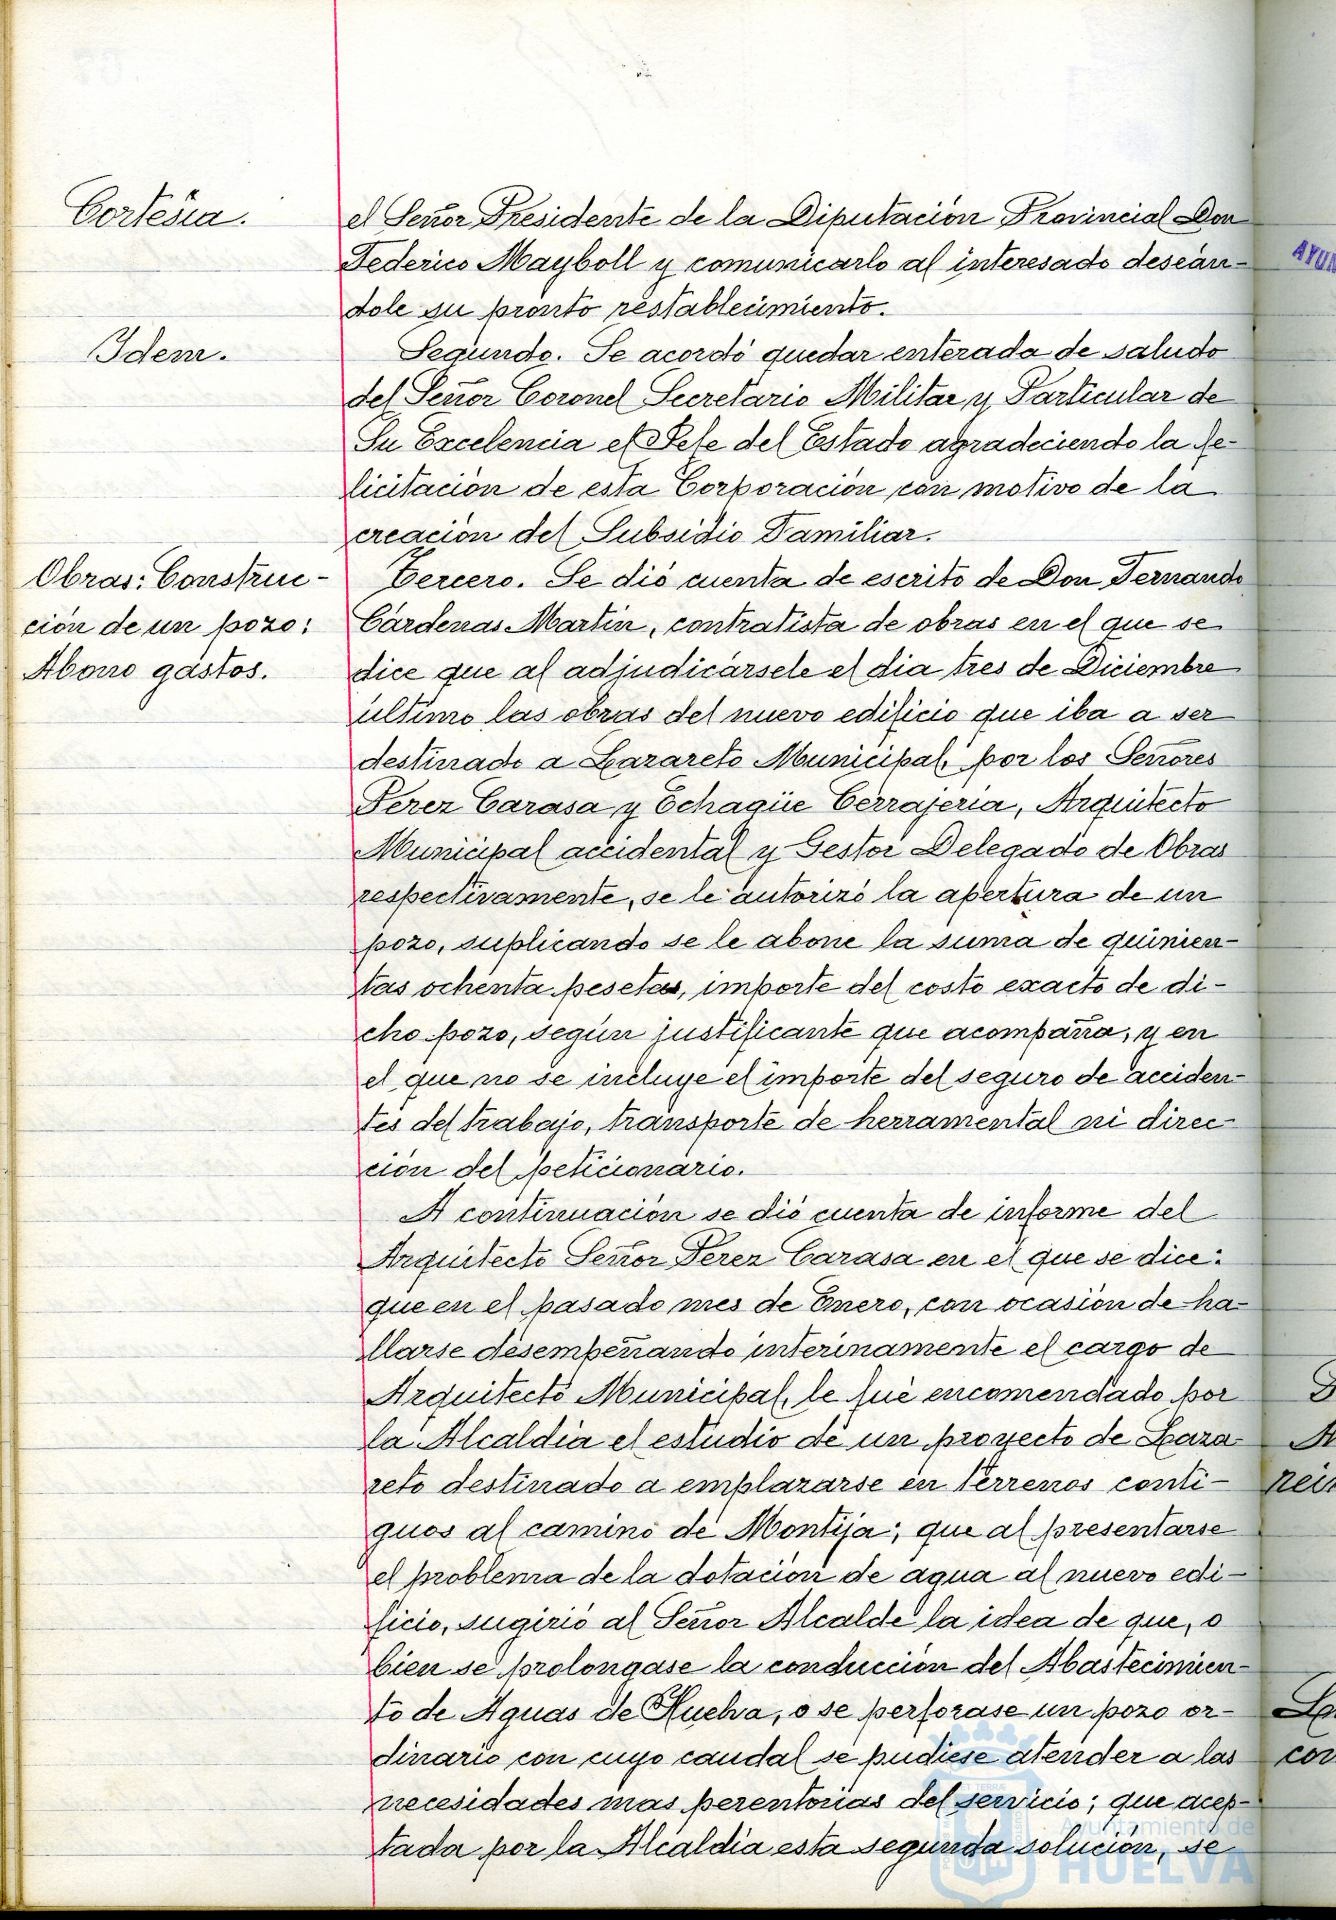 Cortesia.
el Señor Presidente de la Diputación Provincial Don
Federico Mayboll y comunicarlo al interesado deseán-
dole su pronto restablecimiento.
Idem.
Segundo. Se acordó quedar enterada de saludo
del Señor Coronel Secretario Militar y Particular de
Su Excelencia el Jefe del Estado agradeciendo la fe-
licitación de esta Corporación con motivo de la
creación del Subsidio Familiar.
Obras: Construc-
ción de un pozo:
Abono gastos.
Tercero. Se dió cuenta de escrito de Don Fernando
Cárdenas Martin, contratista de obras en el que se
dice que al adjudicársele el dia tres de Diciembre
último las obras del nuevo edificio que iba a ser
destinado a Lazareto Municipal, por los Señores
Perez Carasa y Echagüe Cerrajeria, Arquitecto
Municipal accidental y Gestor Delegado de Obras
respectivamente, se le autorizó la apertura de un
pozo, suplicando se le abone la suma de quinien-
tas ochenta pesetas, importe del costo exacto de di-
cho pozo, según justificante que acompaña, y en
el que no se incluye el importe del seguro de acciden-
tes del trabajo, transporte de herramental ni direc-
ción del peticionario.
A continuación se dió cuenta de informe del
Arquitecto Señor Perez Carasa en el que se dice:
que en el pasado mes de Enero, con ocasión de ha-
llarse desempeñando interinamente el cargo de
Arquitecto Municipal, le fué encomendado por
la Alcaldia el estudio de un proyecto de Laza-
reto destinado a emplazarse en terrenos conti-
guos al camino de Montija; que al presentarse
el problema de la dotación de agua al nuevo edi-
ficio, sugirió al Señor Alcalde la idea de que, o
bien se prolongase la conducción del Abastecimien-
to de Aguas de Huelva, o se perforase un pozo or-
dinario con cuyo caudal se pudiese atender a las
necesidades mas perentorias del servicio; que acep-
tada por la Alcaldia esta segunda solución, se
Ayuntamiento de
HUELVA